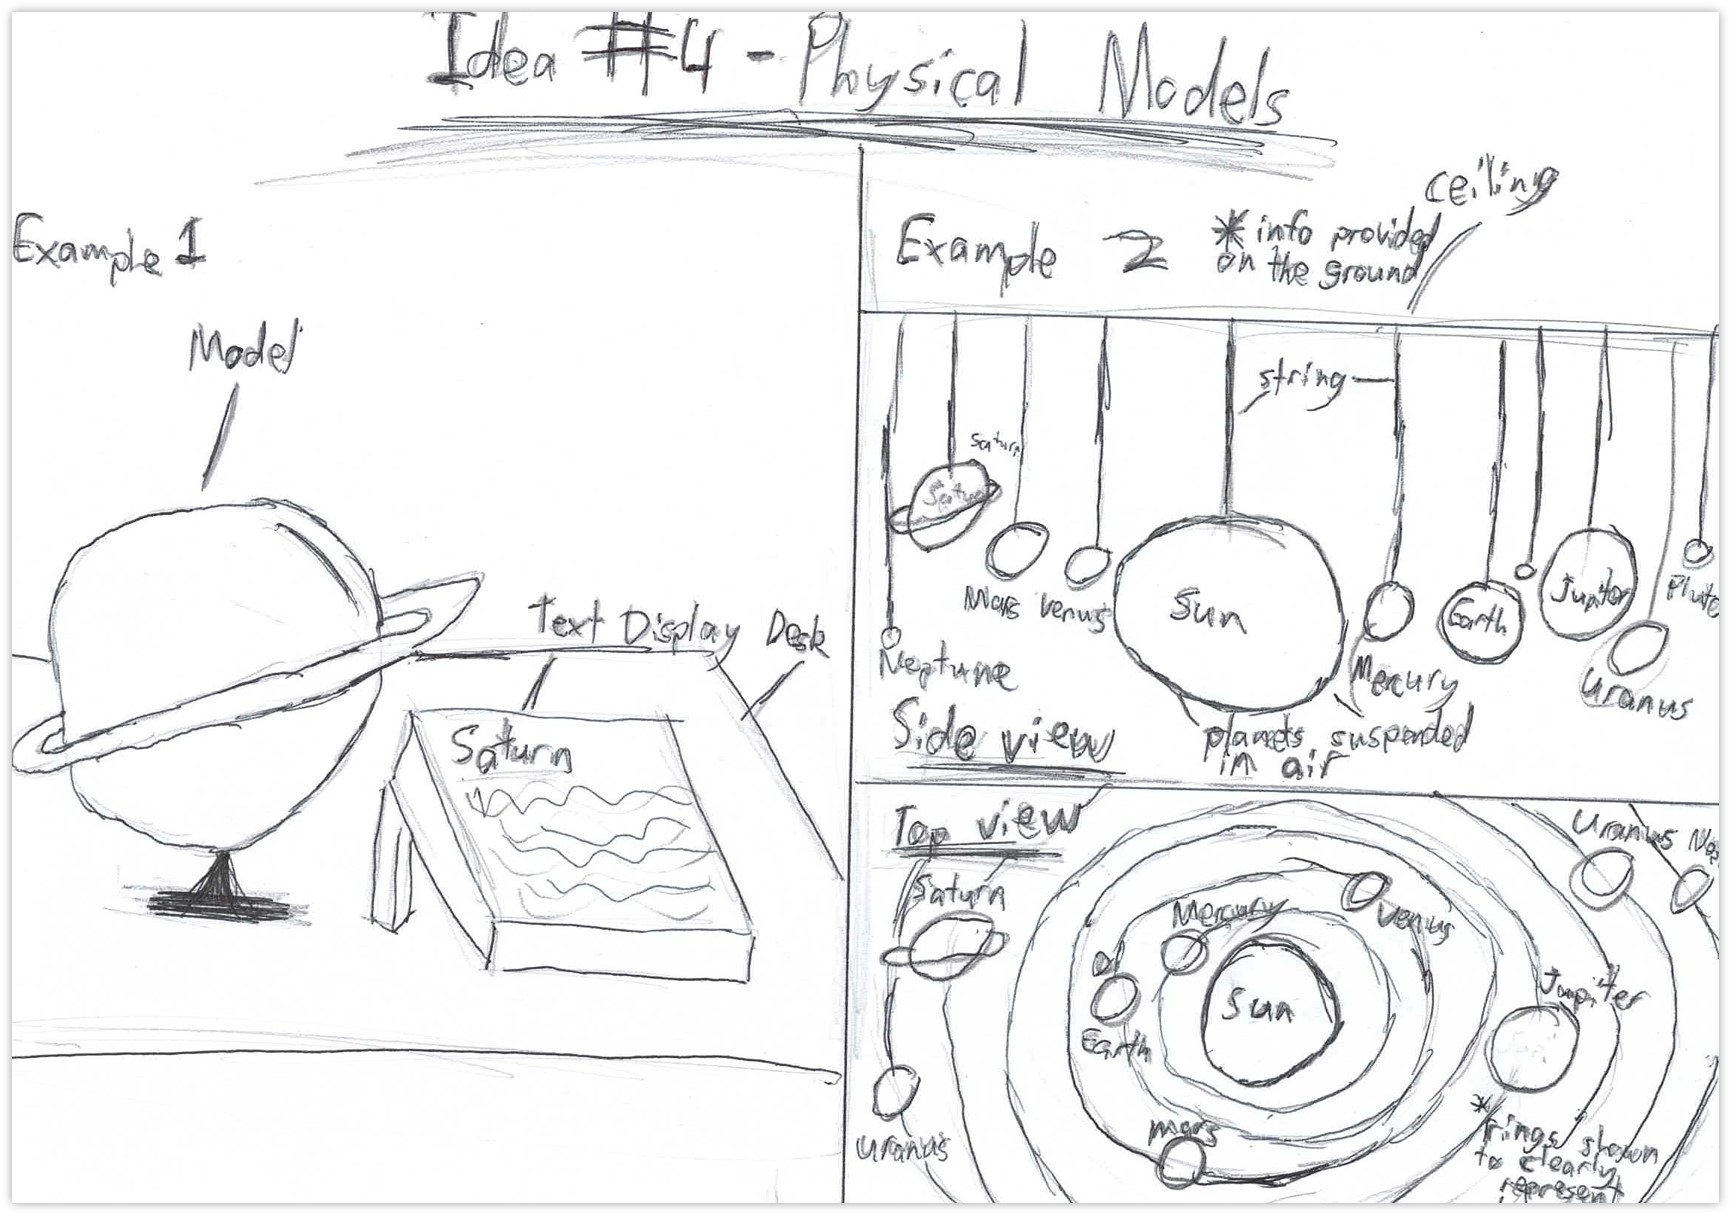 Idea #4 - Physical Models
Example 1
Model
Text Display
Desk
Saturn
Example 2
* info provided
on the ground
ceiling
string
Saturn
Saturn
Mars
Venus
Sun
Mercury
Earth
Jupiter
Pluto
Neptune
Uranus
Side view
planets suspended
in air
Top view
Uranus
Saturn
Mercury
Venus
Sun
Earth
Jupiter
Mars
Uranus
* rings shown
to clearly
represent